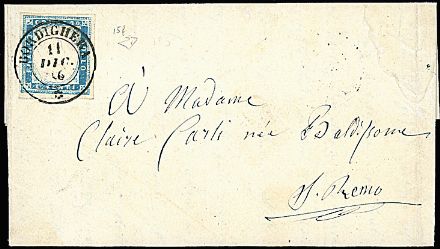 BORDIGHERA
11
DIC.
56
15b
À Madame
Claire Carli née Baldissone
S. Remo